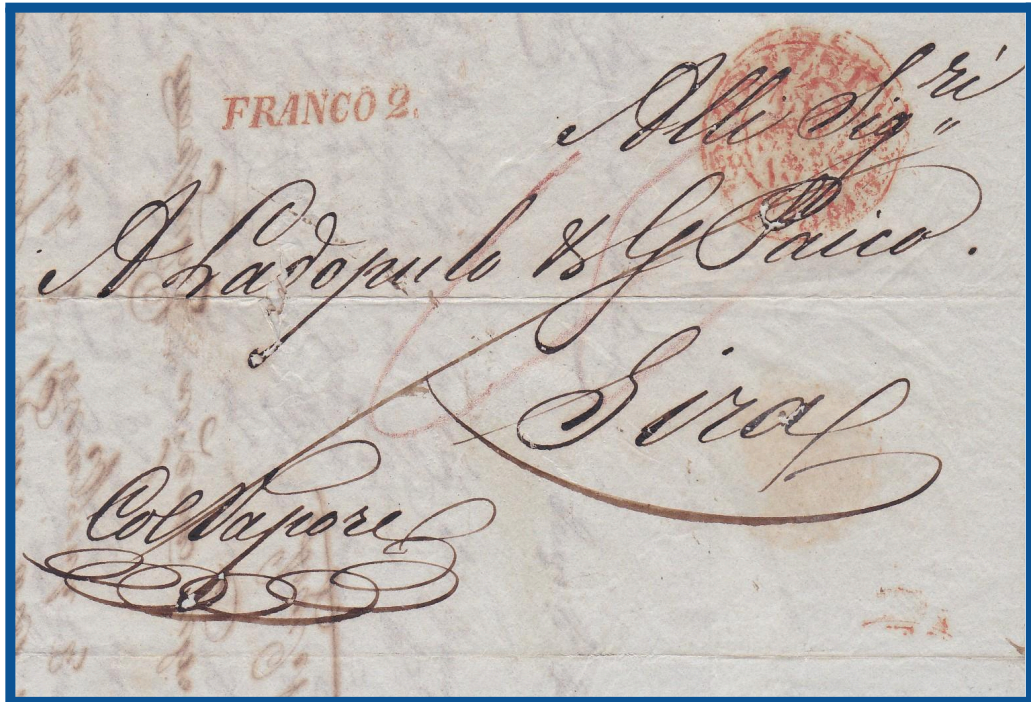 FRANCO 2.
Alli Sig.ri
A Ladopulo & G Paico.
Sira
Col Vapore